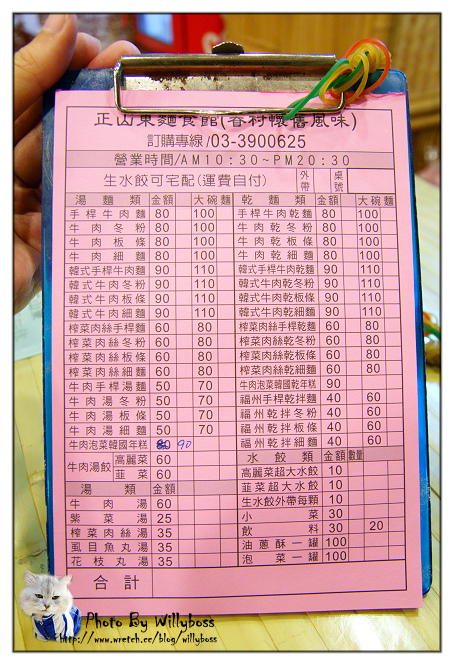 正山東麵食館(眷村懷舊風味)
訂購專線/03-3900625
營業時間/AM10:30~PM20:30
生水餃可宅配(運費自付) 外帶 桌號
湯麵類 金額 大碗麵 乾麵類 金額 大碗麵
手桿牛肉麵 80 100 手桿牛肉乾麵 80 100
牛肉冬粉 80 100 牛肉乾冬粉 80 100
牛肉板條 80 100 牛肉乾板條 80 100
牛肉細麵 80 100 牛肉乾細麵 80 100
韓式手桿牛肉麵 90 110 韓式手桿牛肉乾麵 90 110
韓式牛肉冬粉 90 110 韓式牛肉乾冬粉 90 110
韓式牛肉板條 90 110 韓式牛肉乾板條 90 110
韓式牛肉細麵 90 110 韓式牛肉乾細麵 90 110
榨菜肉絲手桿麵 60 80 榨菜肉絲手桿乾麵 60 80
榨菜肉絲冬粉 60 80 榨菜肉絲乾冬粉 60 80
榨菜肉絲板條 60 80 榨菜肉絲乾板條 60 80
榨菜肉絲細麵 60 80 榨菜肉絲乾細麵 60 80
牛肉手桿湯麵 50 70 牛肉泡菜韓國乾年糕 90
牛肉湯冬粉 50 70 福州手桿乾拌麵 40 60
牛肉湯板條 50 70 福州乾拌冬粉 40 60
牛肉湯細麵 50 70 福州乾拌板條 40 60
牛肉泡菜韓國年糕 90 福州乾拌細麵 40 60
牛肉湯餃 高麗菜 60 水餃類 金額 數量
韮菜 60 高麗菜超大水餃 10
湯類 金額 韮菜超大水餃 10
牛肉湯 60 生水餃外帶每顆 10
紫菜湯 25 小菜 30
榨菜肉絲湯 35 飲料 30 20
虱目魚丸湯 35 油蔥酥一罐 100
花枝丸湯 35 泡菜一罐 100
合計
Photo By Willyboss
http://www.wretch.cc/blog/willyboss